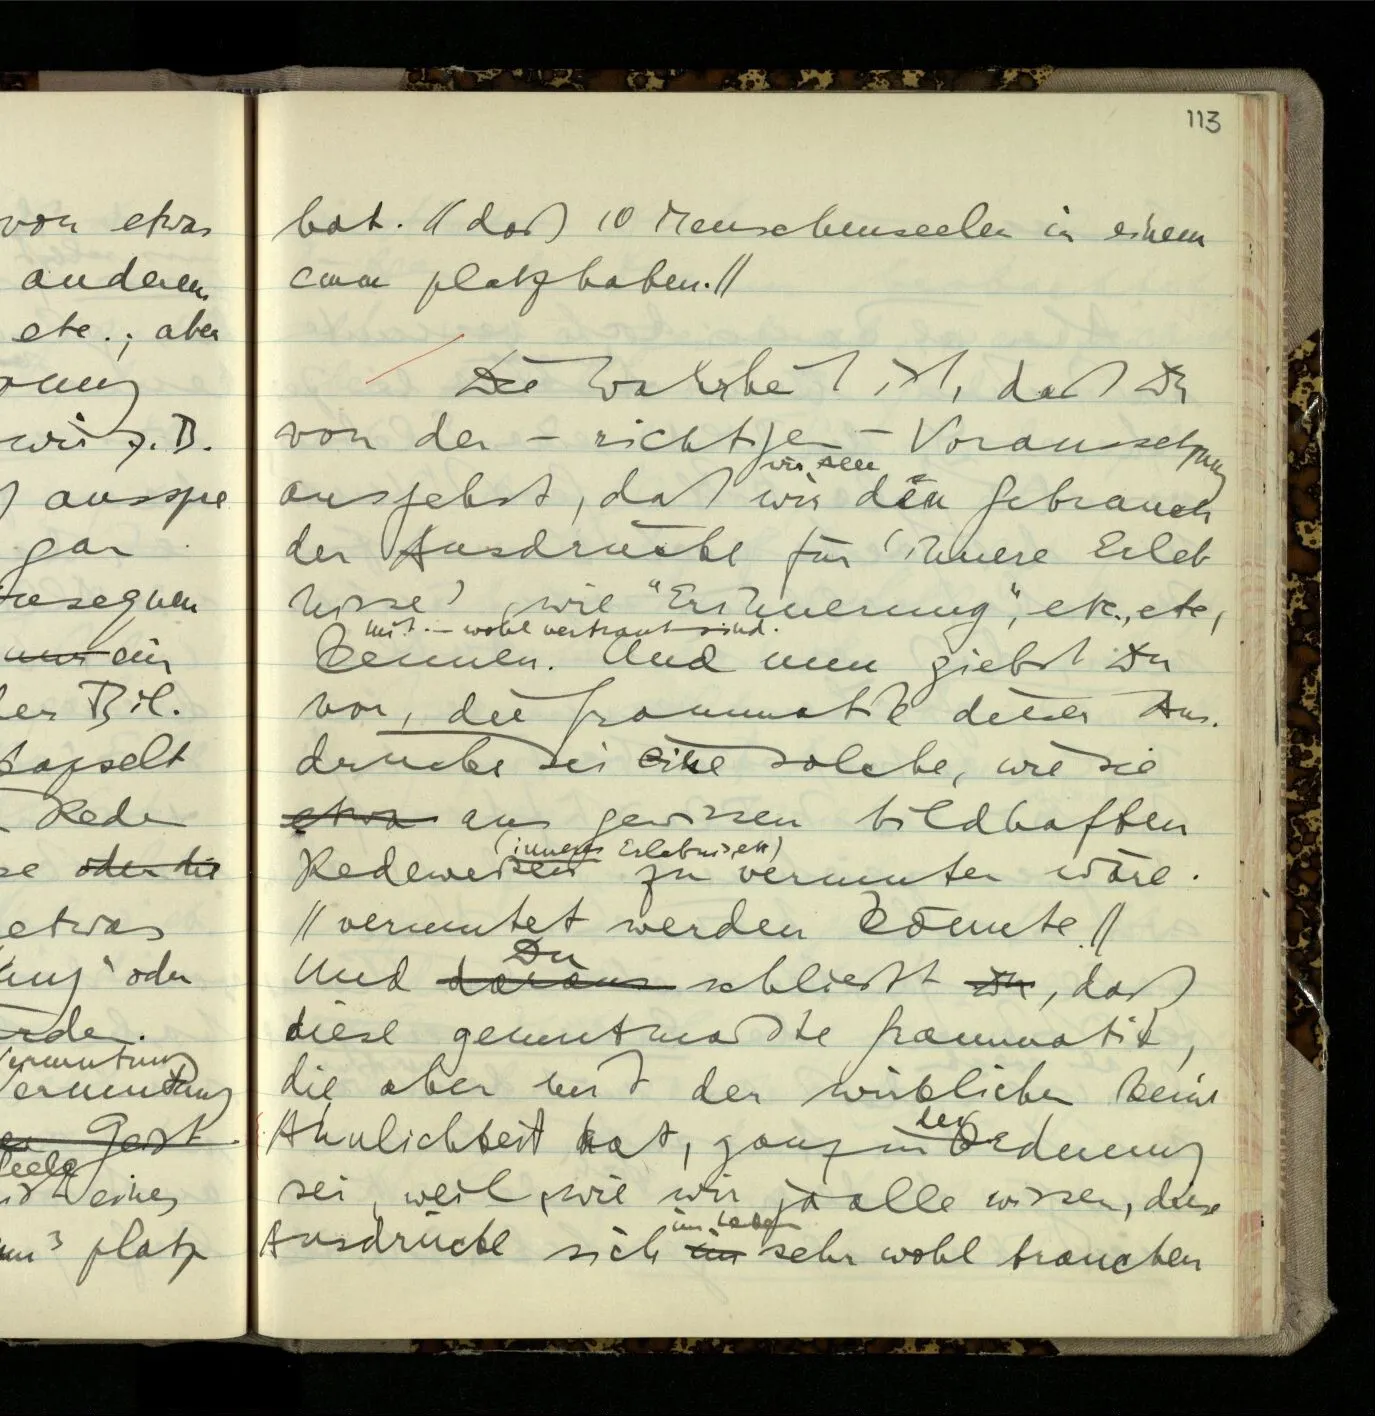 113
von etwas
anderem
etc.; aber
wie z.B.
ausspre
gar
ein
der Bil.
kapselt
Rede
se oder die
etwas
oder
Vermutung
Vermutung
Geist.
Seele
ist eines
platz
hat. // daß 10 Menschenseelen in einem
cmm platzhaben. //
Die Wahrheit ist, daß Du
von der – richtigen – Voraussetzung
wir alle
ausgehst, daß wir den Gebrauch
der Ausdrücke für 'innere Erleb
nisse', wie "Erinnerung", etc., etc.,
mit – wohl vertraut sind.
kennen. Und nun giebst Du
vor, die Grammatik dieser Aus.
drücke sei eine solche, wie sie
etwa aus gewissen bildhaften
(inneres Erlebnis, etc)
Redeweisen zu vermuten wäre.
// vermutet werden könnte. //
Du
Und daraus schließt Du, daß
diese gemutmaßte Grammatik,
die aber mit der wirklichen keine
der
Ähnlichkeit hat, ganz in Ordnung
sei, weil, wie wir ja alle wissen, diese
im Leben
Ausdrücke sich im sehr wohl brauchen